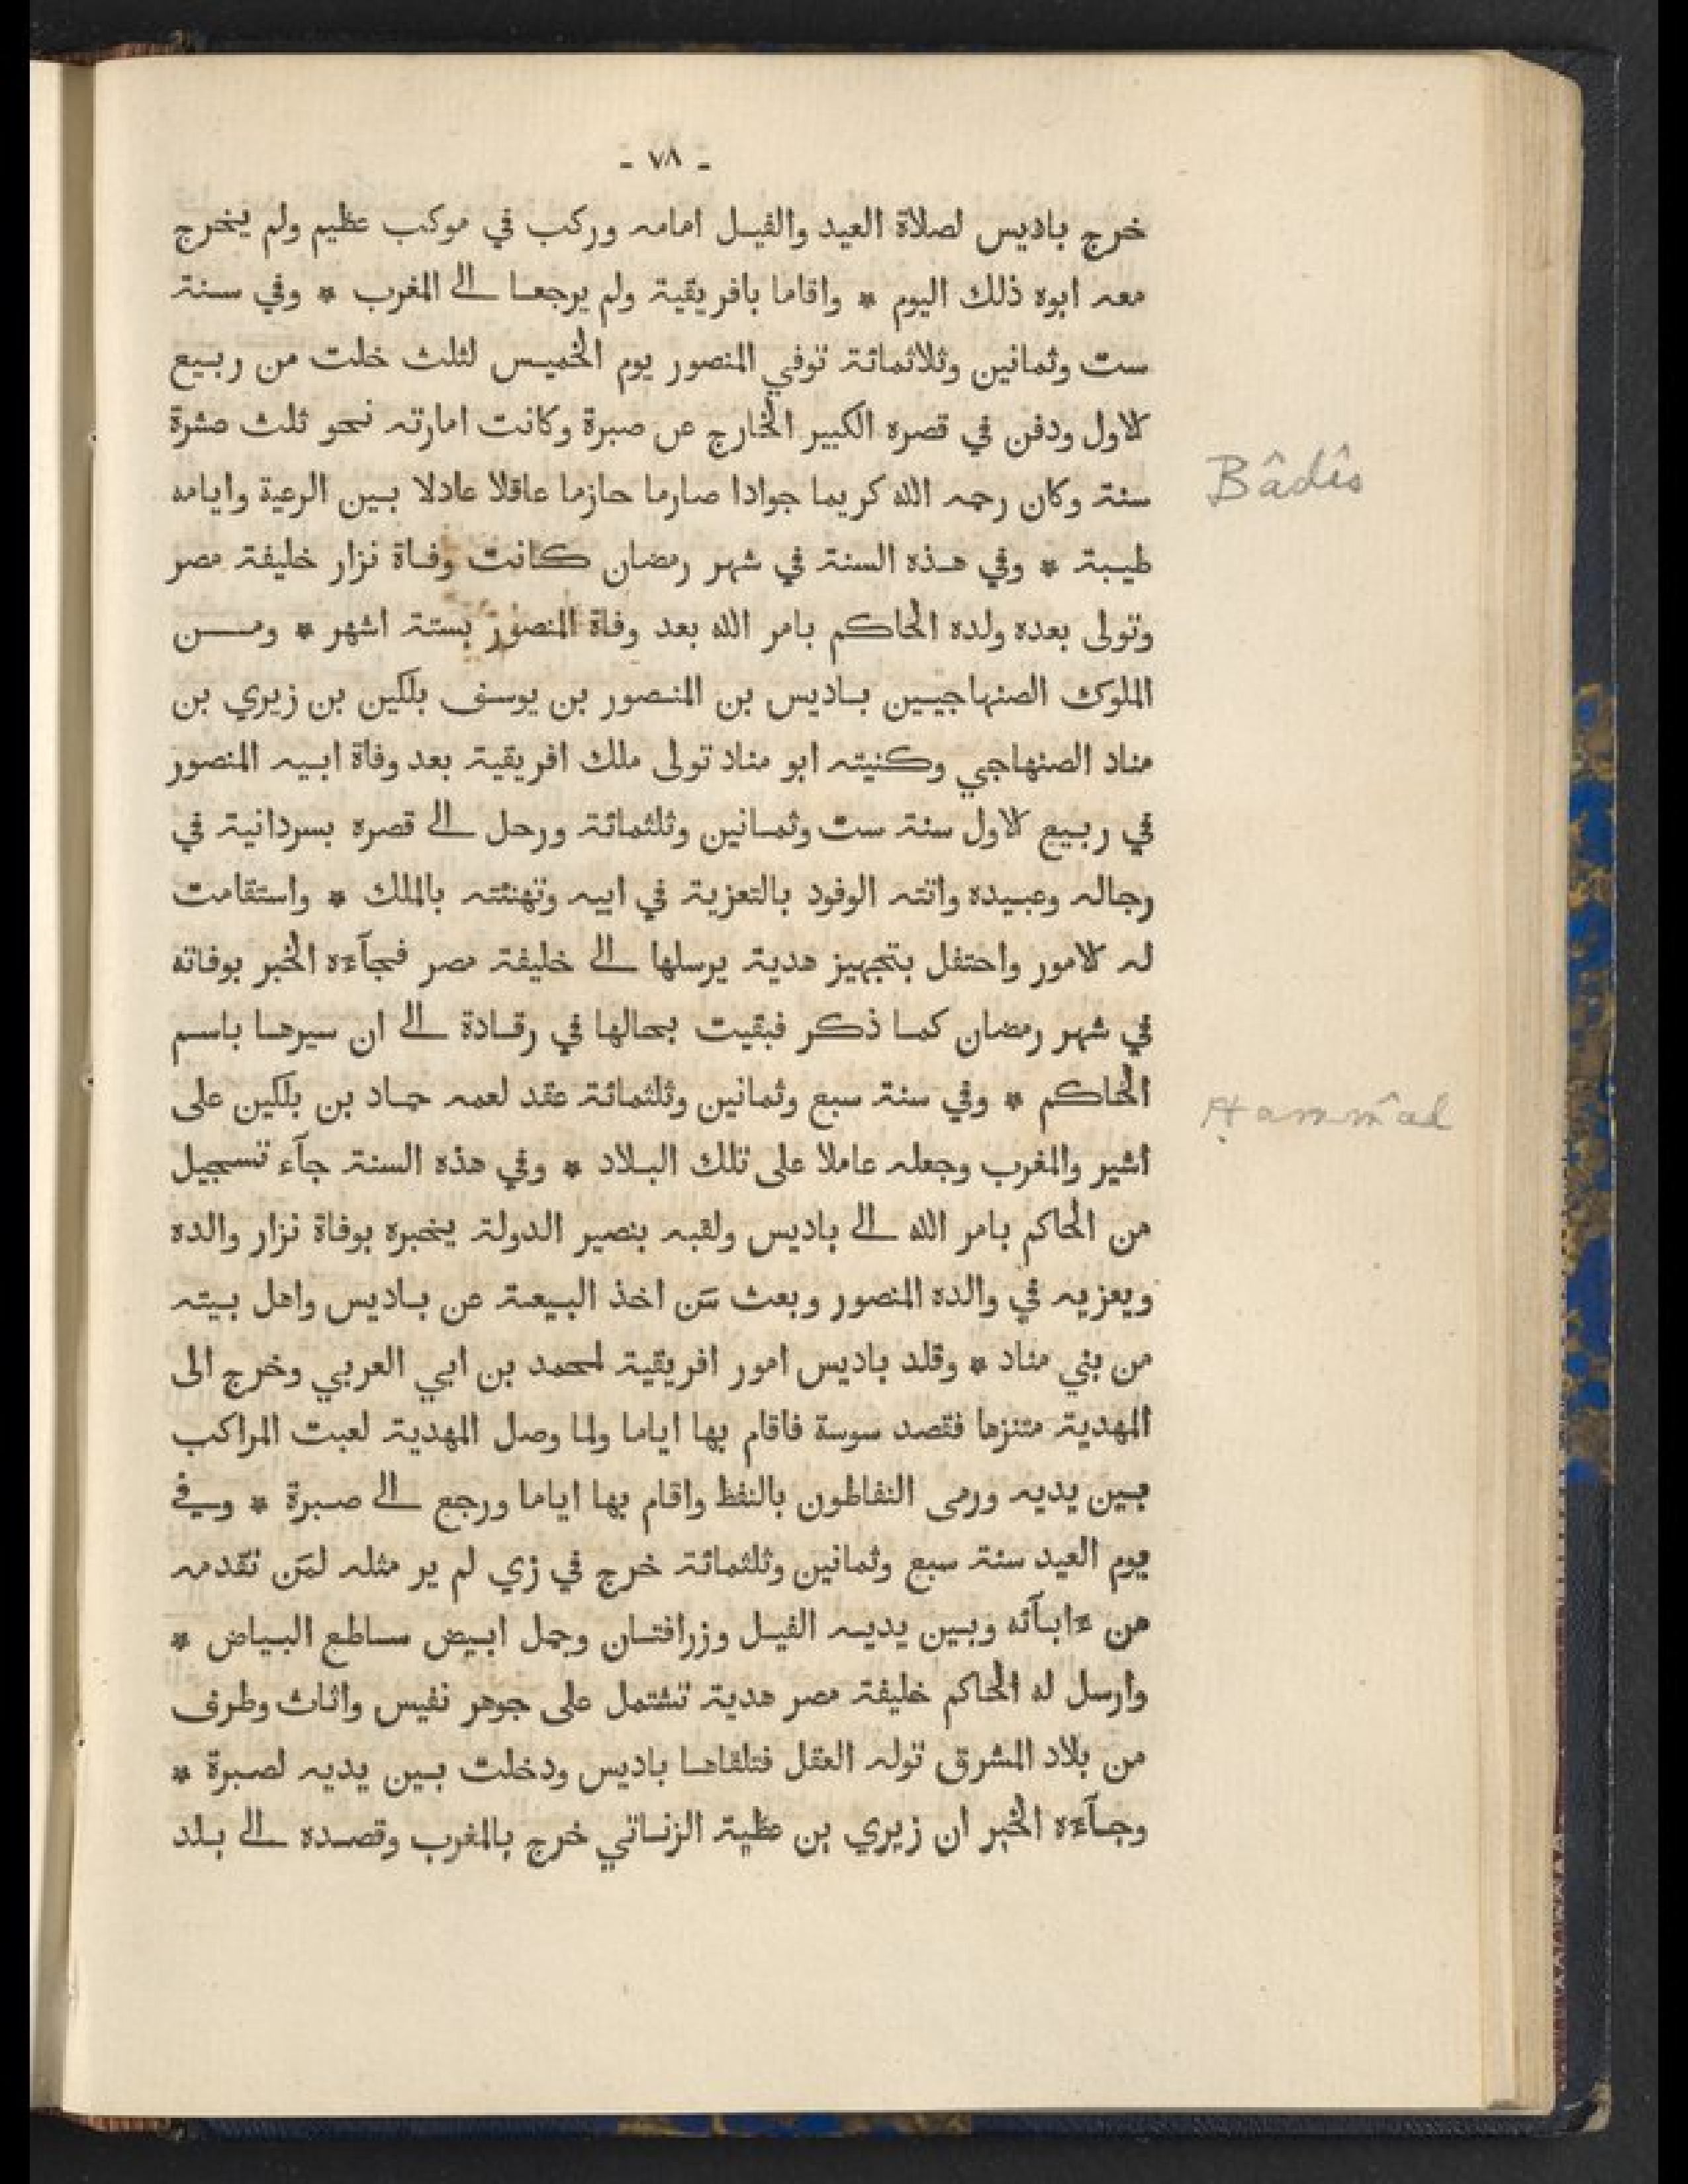 - ٧٨ -
خرج باديس لصلاة العيد والفيل امامه وركب في موكب عظيم ولم يخرج
معه ابوه ذلك اليوم * واقاما بافريقية ولم يرجعا الى المغرب * وفي سنة
ست وثمانين وثلاثمائة توفي المنصور يوم الخميس لثلث خلت من ربيع
الاول ودفن في قصره الكبير الخارج عن صبرة وكانت امارته نحو ثلث عشرة
سنة وكان رحمه الله كريما جوادا صارما حازما عاقلا عادلا بين الرعية وايامه
طيبة * وفي هذه السنة في شهر رمضان كانت وفاة نزار خليفة مصر
وتولى بعده ولده الحاكم بامر الله بعد وفاة المنصور بستة اشهر * ومن
الملوك الصنهاجيين باديس بن المنصور بن يوسف بلكين بن زيري بن
مناد الصنهاجي وكنيته ابو مناد تولى ملك افريقية بعد وفاة ابيه المنصور
في ربيع الاول سنة ست وثمانين وثلثمائة ورحل الى قصره بسردانية في
رجاله وعبيده واتته الوفود بالتعزية في ابيه وتهنئته بالملك * واستقامت
له الامور واحتفل بتجهيز هدية يرسلها الى خليفة مصر فجآءه الخبر بوفاته
في شهر رمضان كما ذكر فبقيت بحالها في رقادة الى ان سيرها باسم
الحاكم * وفي سنة سبع وثمانين وثلثمائة عقد لعمه حماد بن بلكين على
اشير والمغرب وجعله عاملا على تلك البلاد * وفي هذه السنة جآء تسجيل
من الحاكم بامر الله الى باديس ولقبه بنصير الدولة يخبره بوفاة نزار والده
ويعزيه في والده المنصور وبعث مَن اخذ البيعة عن باديس واهل بيته
من بني مناد * وقلد باديس امور افريقية لمحمد بن ابي العربي وخرج الى
المهدية متنزها فقصد سوسة فاقام بها اياما ولما وصل المهدية لعبت المراكب
بين يديه ورمى النفاطون بالنفط واقام بها اياما ورجع الى صبرة * وفي
يوم العيد سنة سبع وثمانين وثلثمائة خرج في زي لم ير مثله لمَن تقدمه
من ءابآئه وبين يديه الفيل وزرافتان وجمل ابيض ساطع البياض *
وارسل له الحاكم خليفة مصر هدية تشتمل على جوهر نفيس واثاث وطرف
من بلاد المشرق توله العقل فتلقاها باديس ودخلت بين يديه لصبرة *
وجآءه الخبر ان زيري بن عطية الزناتي خرج بالمغرب وقصده الى بلد
Bâdîs
Ḥammâd